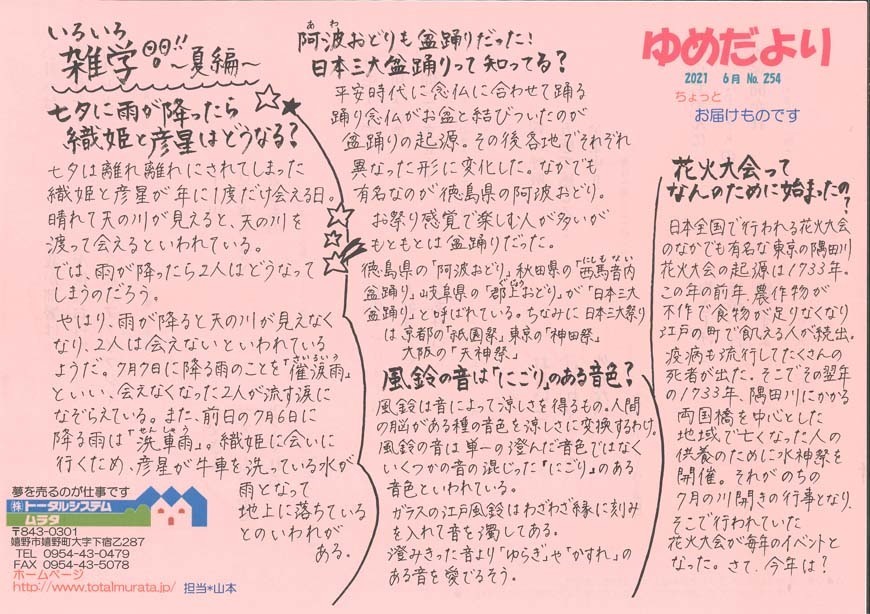 ゆめだより
2021 6月 No. 254
ちょっと
お届けものです
いろいろ
雑学!!
～夏編～
七夕に雨が降ったら
織姫と彦星はどうなる?
七夕は離れ離れにされてしまった
織姫と彦星が年に1度だけ会える日。
晴れて天の川が見えると、天の川を
渡って会えるといわれている。
では、雨が降ったら2人はどうなって
しまうのだろう。
やはり、雨が降ると天の川が見えなく
なり、2人は会えないといわれている
ようだ。7月7日に降る雨のことを「催涙雨」
さいるいう
といい、会えなくなった2人が流す涙に
なぞらえている。また、前日の7月6日に
降る雨は「洗車雨」。織姫に会いに
せんしゃう
行くため、彦星が牛車を洗っている水が
雨となって
地上に落ちている
とのいわれが
ある。
あわ
阿波おどりも盆踊りだった!
日本三大盆踊りって知ってる?
平安時代に念仏に合わせて踊る
踊り念仏がお盆と結びついたのが
盆踊りの起源。その後各地でそれぞれ
異なった形に変化した。なかでも
有名なのが徳島県の阿波おどり。
お祭り感覚で楽しむ人が多いが
もともとは盆踊りだった。
徳島県の「阿波おどり」秋田県の「西馬音内
にしもない
盆踊り」岐阜県の「郡上おどり」が「日本三大
ぐじょう
盆踊り」と呼ばれている。ちなみに日本三大祭り
は京都の「祇園祭」東京の「神田祭」
大阪の「天神祭」
風鈴の音は「にごり」のある音色?
風鈴は音によって涼しさを得るもの。人間
の脳がある種の音色を涼しさに変換するわけ。
風鈴の音は単一の澄んだ音色ではなく
いくつかの音の混じった「にごり」のある
音色といわれている。
ガラスの江戸風鈴はわざわざ縁に刻み
を入れて音を濁してある。
澄みきった音より「ゆらぎ」や「かすれ」の
ある音を愛でるそう。
花火大会って
なんのために始まったの?
日本全国で行われる花火大会
のなかでも有名な東京の隅田川
花火大会の起源は1733年。
この年の前年、農作物が
不作で食物が足りなくなり
江戸の町で飢える人が続出。
疫病も流行してたくさんの
死者が出た。そこでその翌年
の1733年、隅田川にかかる
両国橋を中心とした
地域で亡くなった人の
供養のために水神祭を
開催。それがのちの
7月の川開きの行事となり、
そこで行われていた
花火大会が毎年のイベントと
なった。さて、今年は?
夢を売るのが仕事です
㈱トータルシステム
ムラタ
〒843-0301
嬉野市嬉野町大字下宿乙287
TEL 0954-43-0479
FAX 0954-43-5078
ホームページ
http://www.totalmurata.jp/ 担当*山本